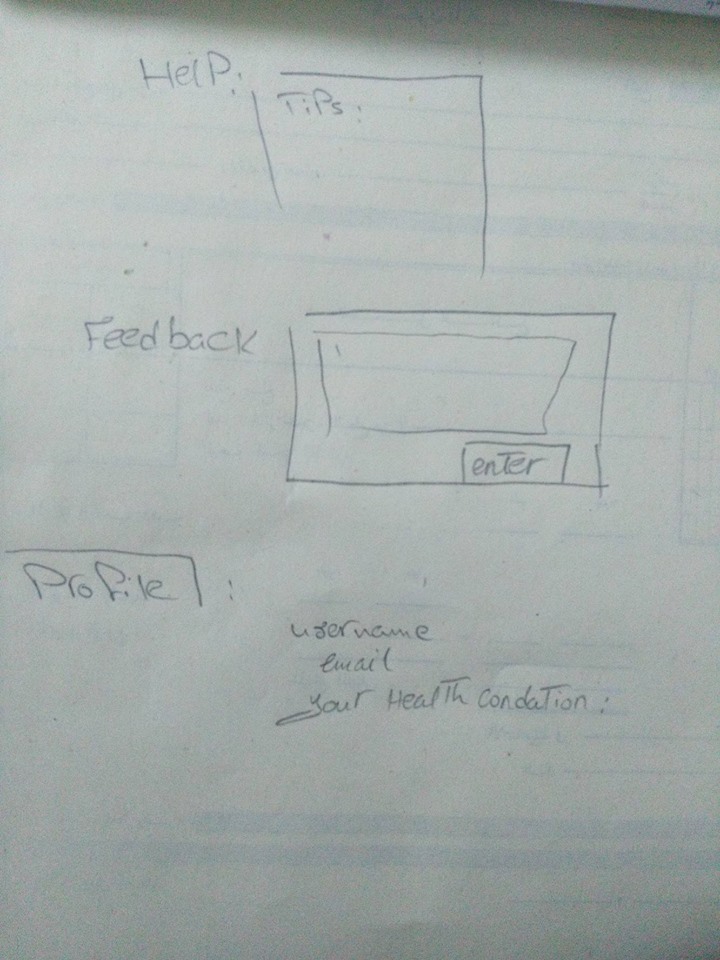 Help:
Tips:
Feedback
enter
Profile :
username
email
your Health Condation :